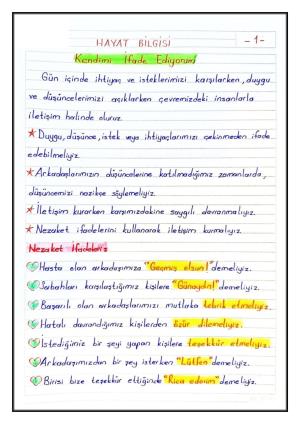 HAYAT BİLGİSİ
-1-
Kendimi İfade Ediyorum
Gün içinde ihtiyaç ve isteklerimizi karşılarken, duygu
ve düşüncelerimizi açıklarken çevremizdeki insanlarla
iletişim halinde oluruz.
★Duygu, düşünce, istek veya ihtiyaçlarımızı çekinmeden ifade
edebilmeliyiz.
★Arkadaşlarımızın düşüncelerine katılmadığımız zamanlarda,
düşüncemizi nazikçe söylemeliyiz.
★İletişim kurarken karşımızdakine saygılı davranmalıyız.
★Nezaket ifadelerini kullanarak iletişim kurmalıyız.
Nezaket İfadeleri:
Hasta olan arkadaşımıza "Geçmiş olsun!" demeliyiz.
Sabahları karşılaştığımız kişilere "Günaydın!" demeliyiz.
Başarılı olan arkadaşlarımızı mutlaka tebrik etmeliyiz.
Hatalı davrandığımız kişilerden özür dilemeliyiz.
İstediğimiz bir şeyi yapan kişilere teşekkür etmeliyiz.
Arkadaşımızdan bir şey isterken "Lütfen" demeliyiz.
Birisi bize teşekkür ettiğinde "Rica ederim" demeliyiz.